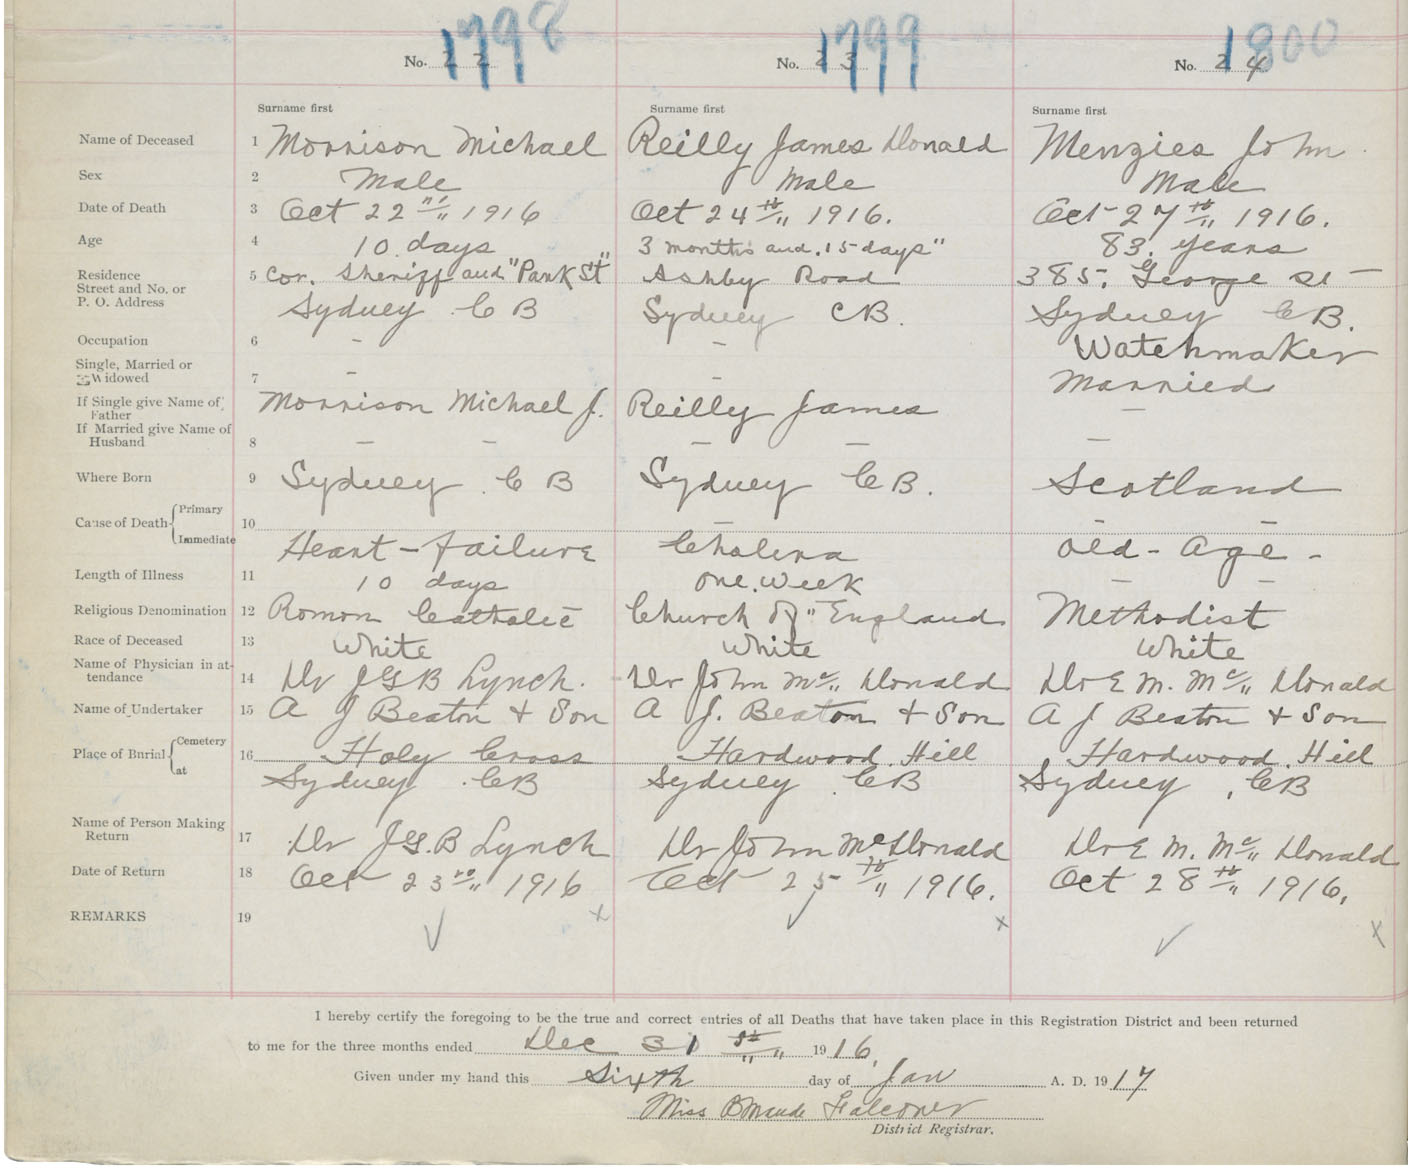 1798 1799 1800
No. 22 No. 23 No. 24
Surname first Surname first Surname first
Name of Deceased 1 Morrison Michael Reilly James Donald Menzies John
Sex 2 Male Male Male
Date of Death 3 Oct 22nd 1916 Oct 24th 1916. Oct 27th 1916.
Age 4 10 days 3 months and 15 days" 83 years
Residence 5 Cor. Sheriff and "Park St" Ashby Road 385. George St
Street and No. or
P. O. Address Sydney C B Sydney CB. Sydney CB.
Occupation 6 - - Watchmaker
Single, Married or
Widowed 7 - - Married
If Single give Name of Father Morrison Michael J. Reilly James —
If Married give Name of Husband 8 — — — — —
Where Born 9 Sydney C B Sydney CB. Scotland
Cause of Death Primary 10 — — —
Immediate Heart-failure Cholera Old-Age-
Length of Illness 11 10 days One week — —
Religious Denomination 12 Roman Catholic Church Of" England Methodist
Race of Deceased 13 White White White
Name of Physician in at-
tendance 14 Dr J G B Lynch. Dr John Mc Donald Dr E M. Mc Donald
Name of Undertaker 15 A J Beaton + Son A J. Beaton + Son A J Beaton + Son
Place of Burial Cemetery 16 Holy Cross Hardwood Hill Hardwood Hill
at Sydney CB Sydney CB Sydney, CB
Name of Person Making
Return 17 Dr J G. B Lynch Dr John McDonald Dr E M. Mc Donald
Date of Return 18 Oct 23rd 1916 Oct 25th 1916. Oct 28th 1916.
REMARKS 19
I hereby certify the foregoing to be the true and correct entries of all Deaths that have taken place in this Registration District and been returned
to me for the three months ended Dec 31st 1916.
Given under my hand this Sixth day of Jan A. D. 1917
Miss B Maude Falconer
District Registrar.